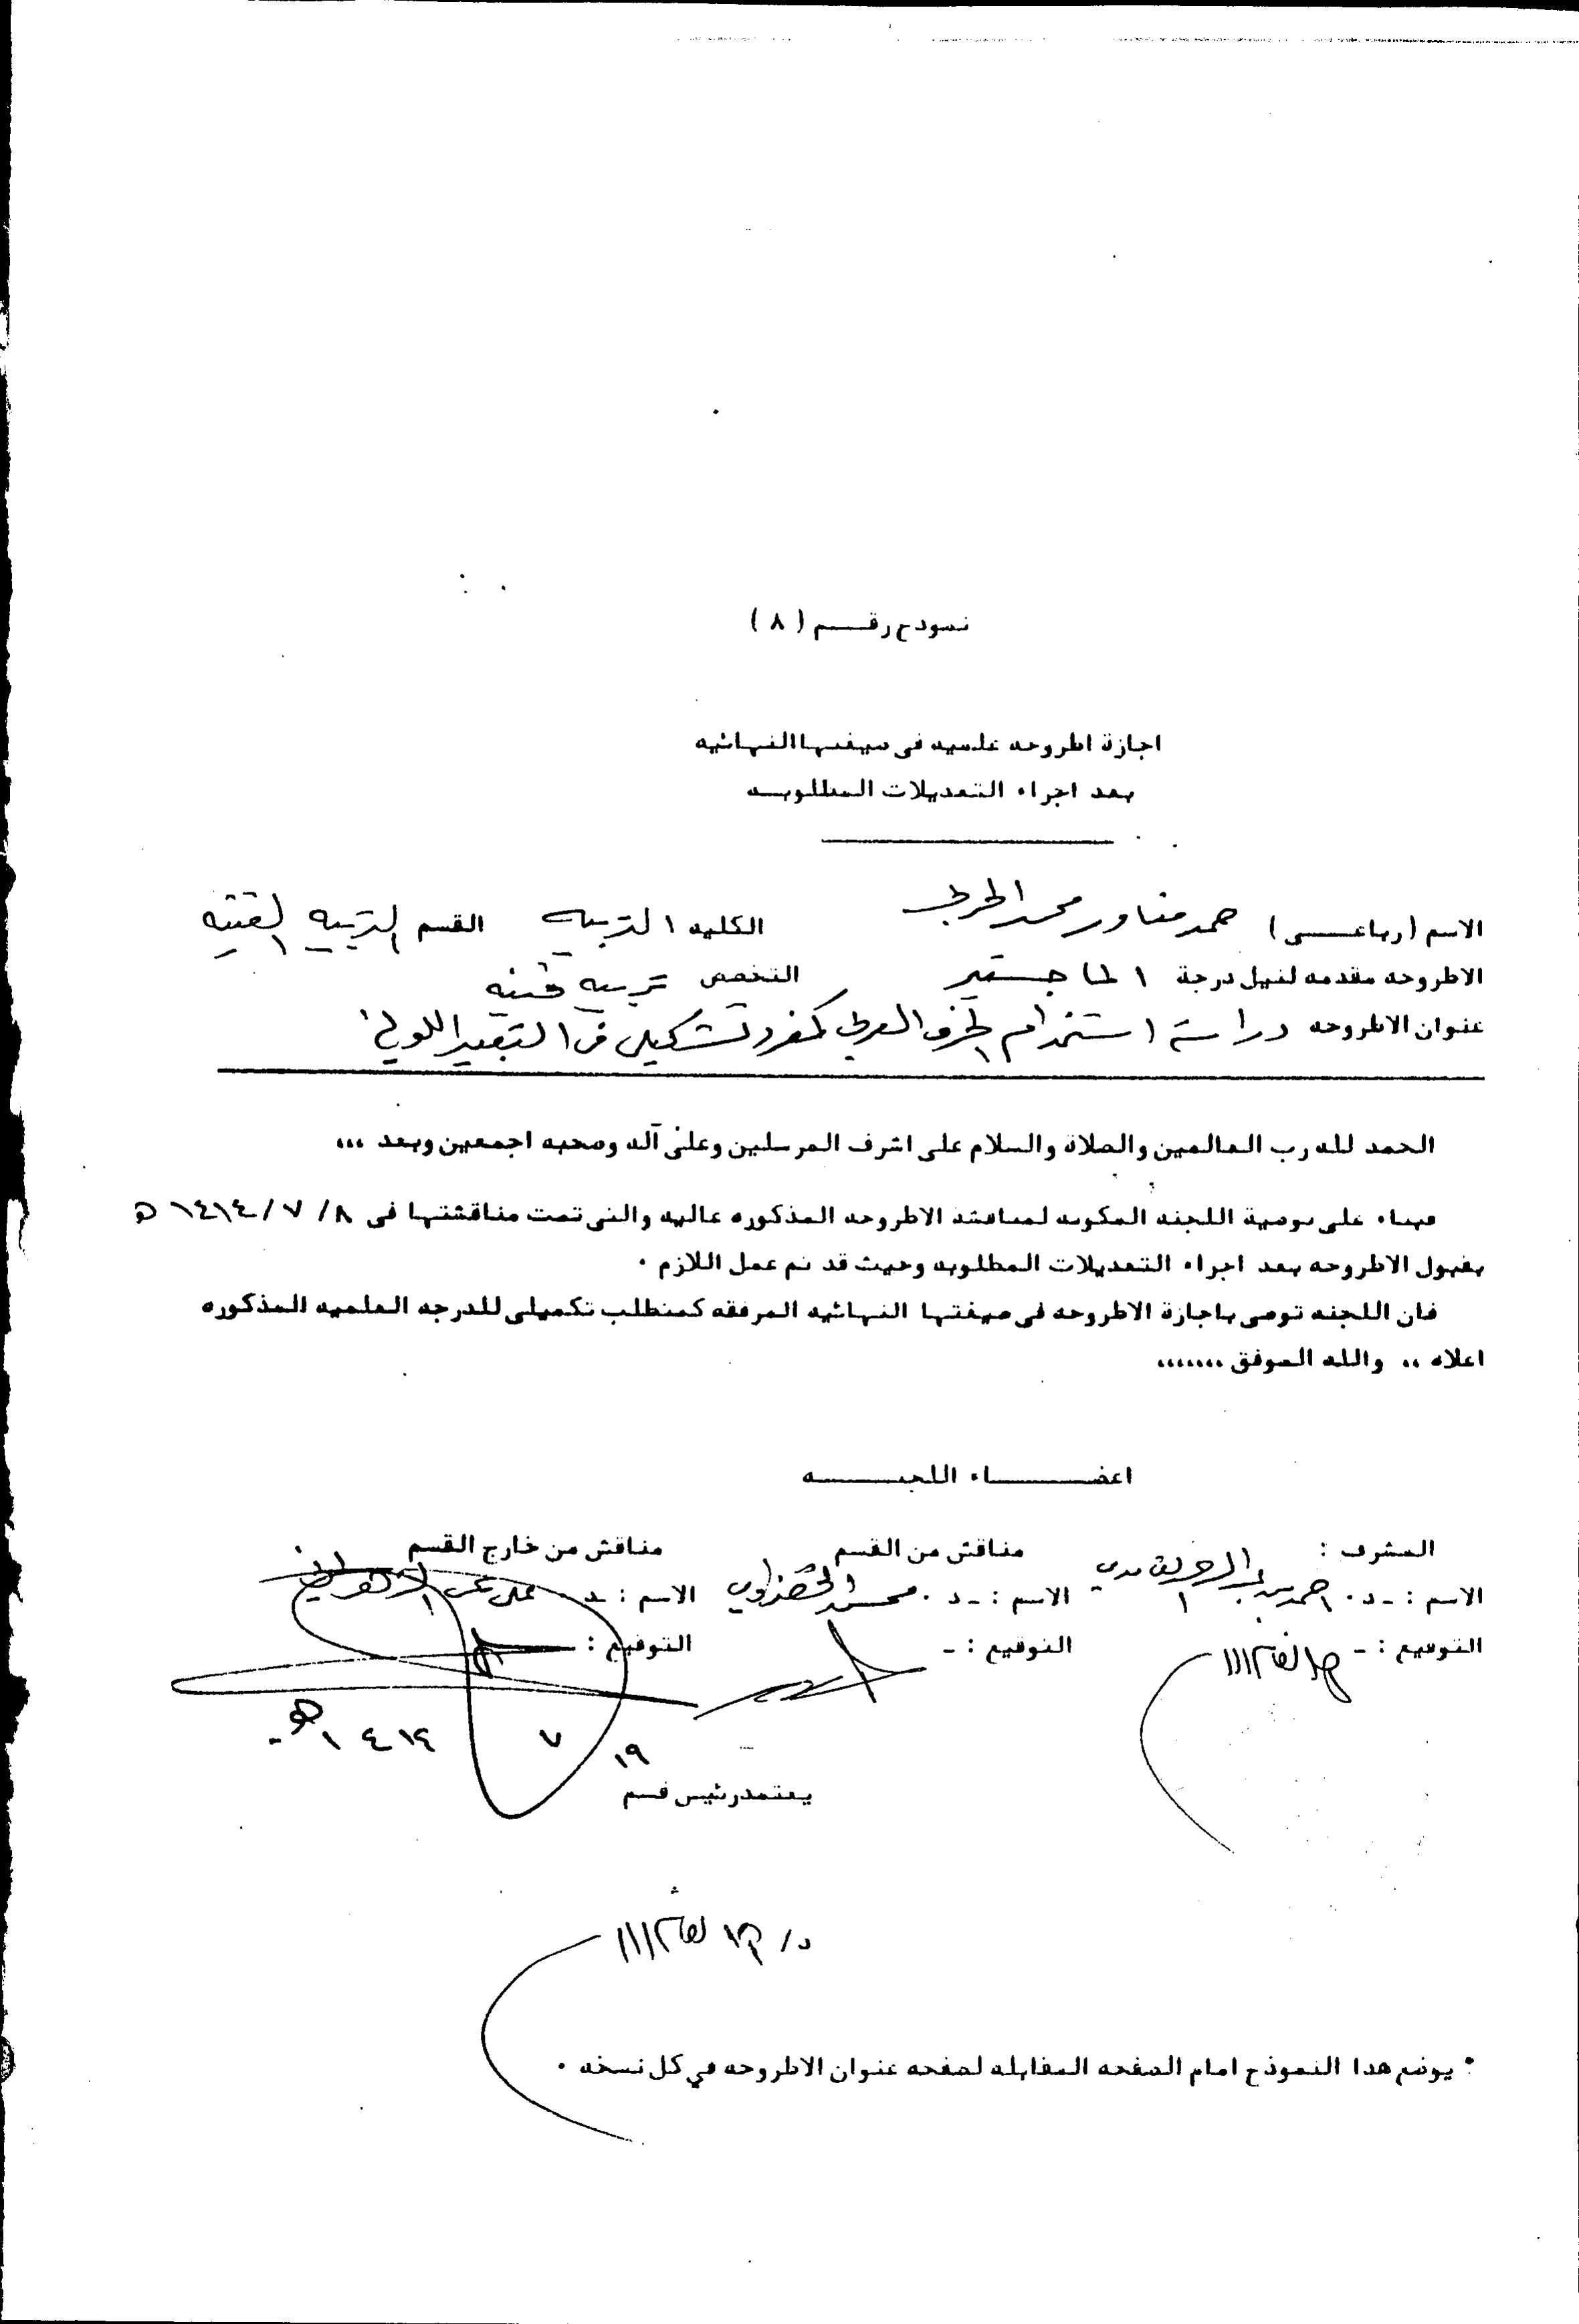 نموذج رقـــم ( ٨ )
اجازة اطروحه علميه فى صيغتها النهائيه
بعد اجراء التعديلات المطلوبـــه
الاسم ( رباعـــــى ) حمد مناور محمد الحربي الكليه التربيه القسم التربيه الفنيه
الاطروحه مقدمه لنيل درجة الماجستير التخصص تربيه فنيه
عنوان الاطروحه دراسة استخدام الحرف العربي كمفرد تشكيلى فى التعبير اللوني
الحمد لله رب العالمين والصلاة والسلام على اشرف المرسلين وعلى آله وصحبه اجمعين وبعد ...
فبناء على توصية اللجنه المكونه لمناقشة الاطروحه المذكوره عاليه والتى تمت مناقشتها فى ٨ / ٧ / ١٤١٤ هـ
بقبول الاطروحه بعد اجراء التعديلات المطلوبه وحيث قد تم عمل اللازم .
فان اللجنه توصى باجازة الاطروحه فى صيغتها النهائيه المرفقه كمتطلب تكميلى للدرجه العلميه المذكوره
اعلاه .. والله الموفق .......
اعضـــــــاء اللجنـــــــه
المشرف : مناقش من القسم مناقش من خارج القسم
الاسم : ـ د . احمد بن عبد الرحمن الاسم : ـ د . محمد الخضراوي الاسم : ـ د على
التوقيع : ـ التوقيع : ـ التوقيع :
١٩ ٧ ١٤١٤ هـ
يعتمد رئيس قسم
د /
* يوضع هذا النموذج امام الصفحه المقابله لصفحه عنوان الاطروحه في كل نسخه .